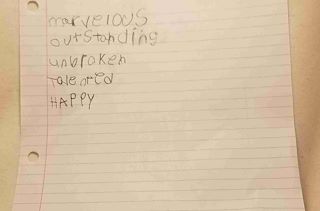 marvelous
outstanding
unbroken
Talented
HAPPY